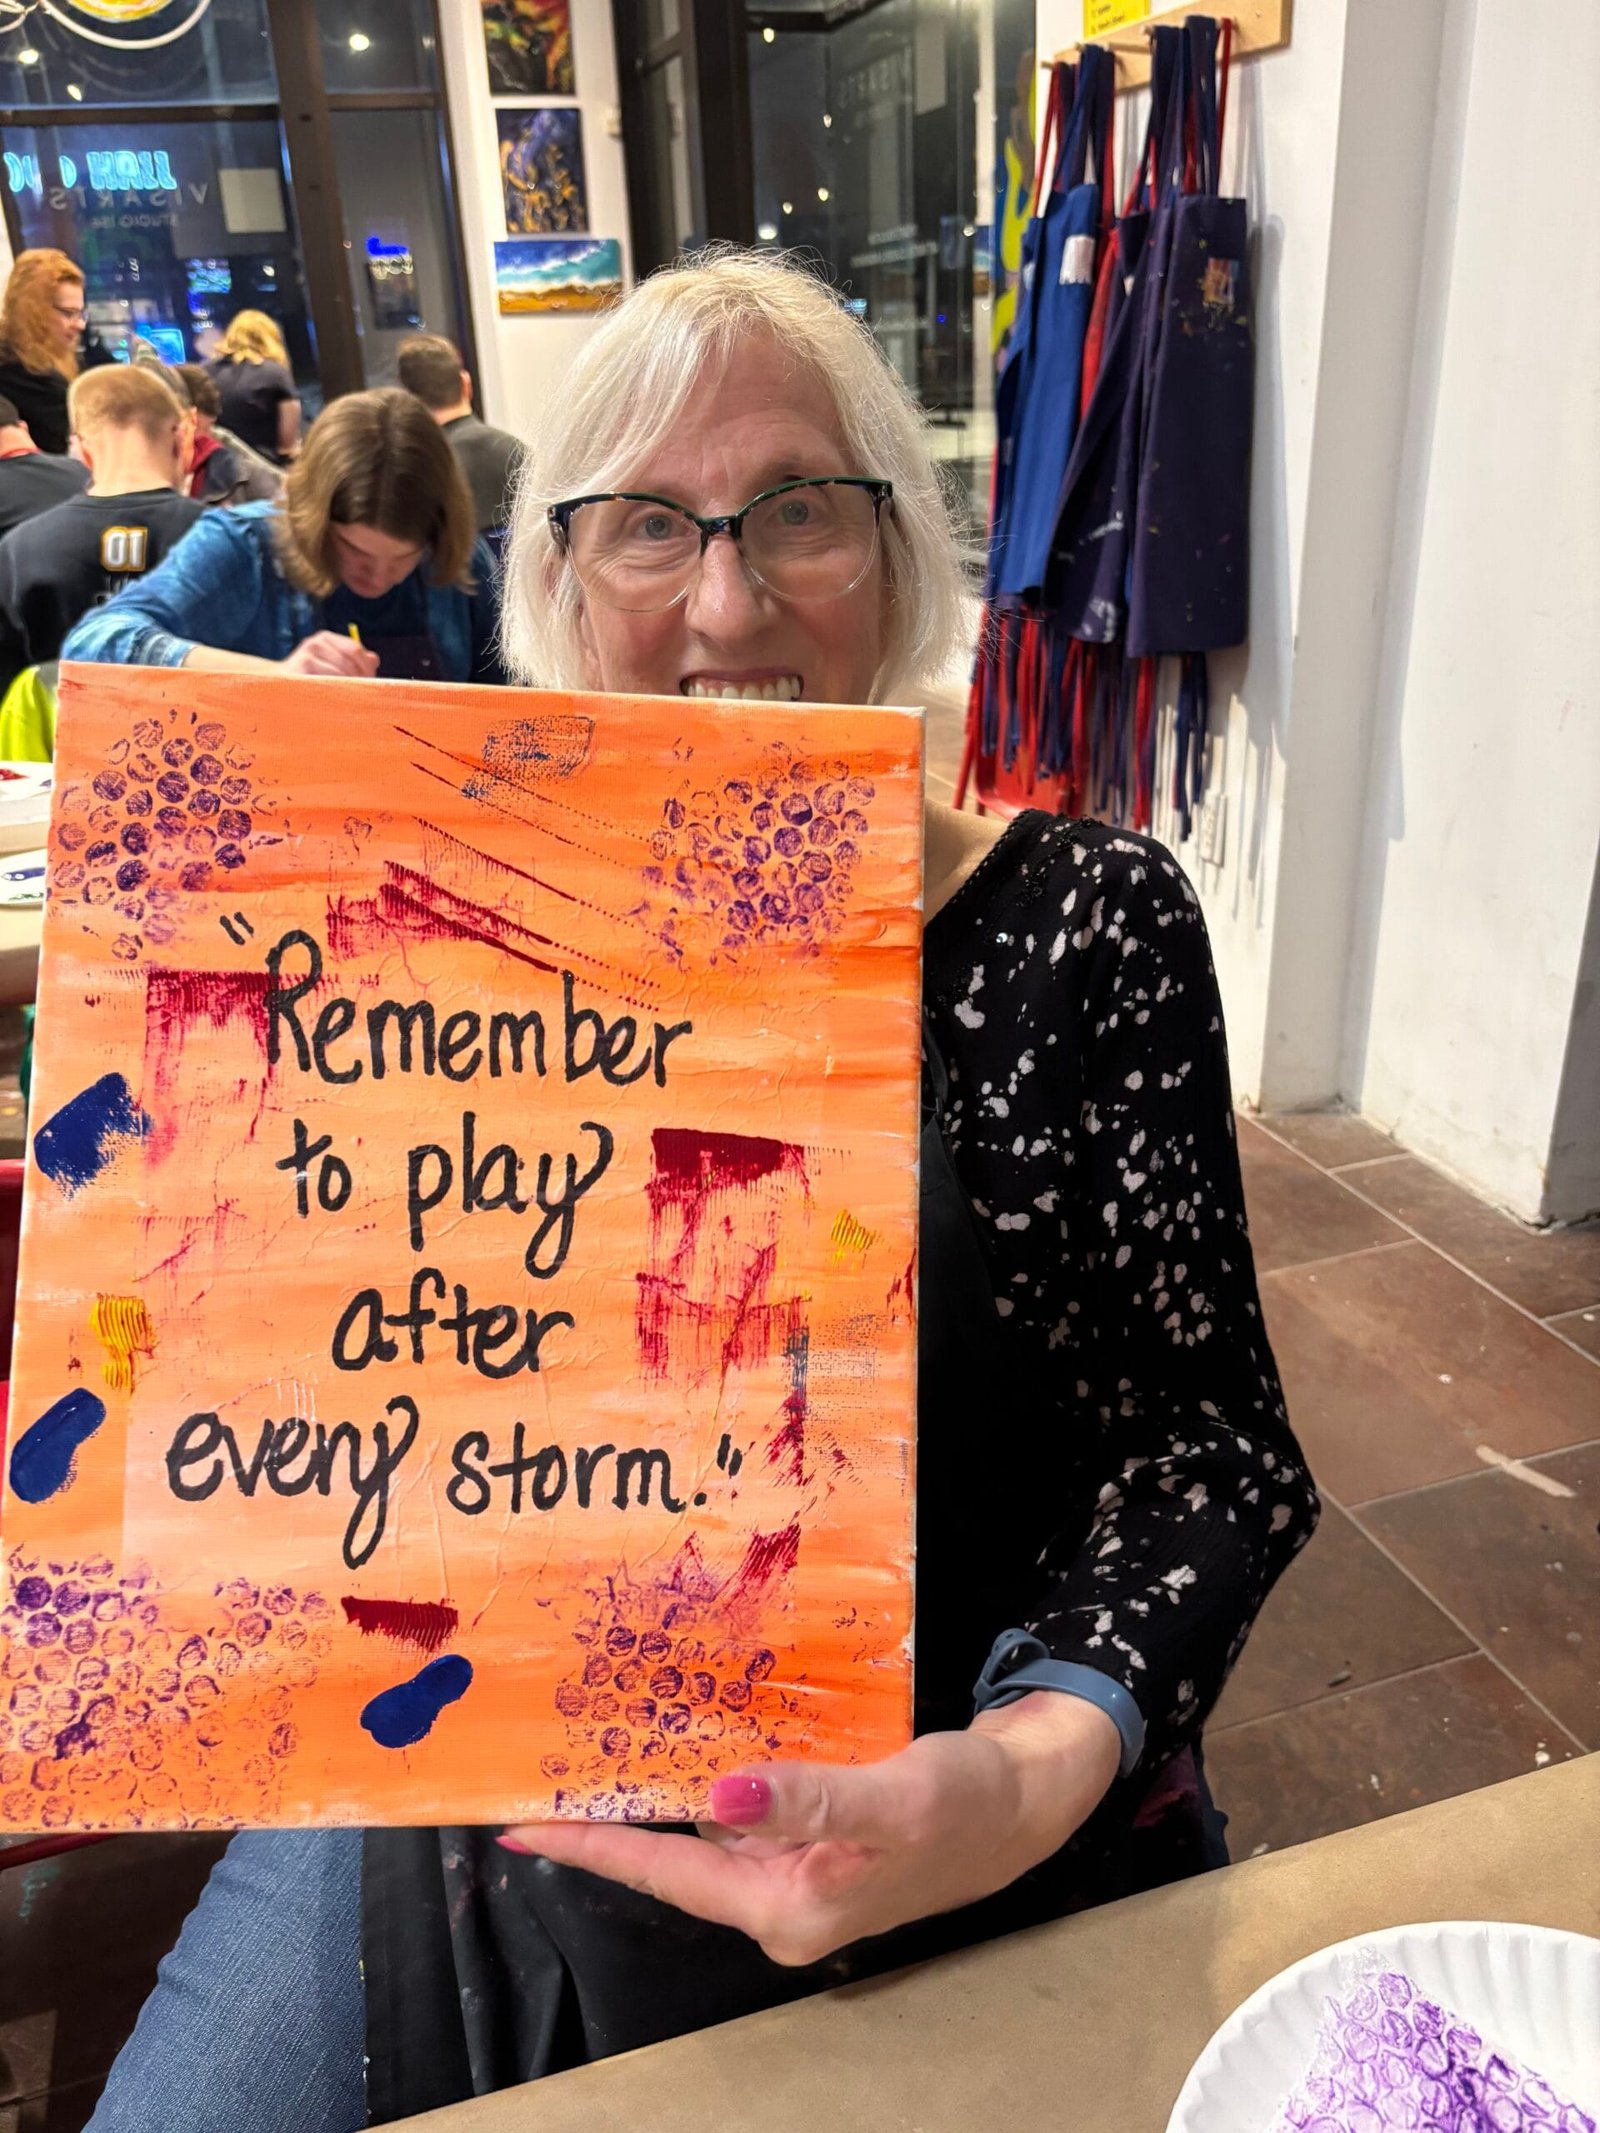 HALL
VISARTS
STUDIO
01
"Remember
to play
after
every storm."